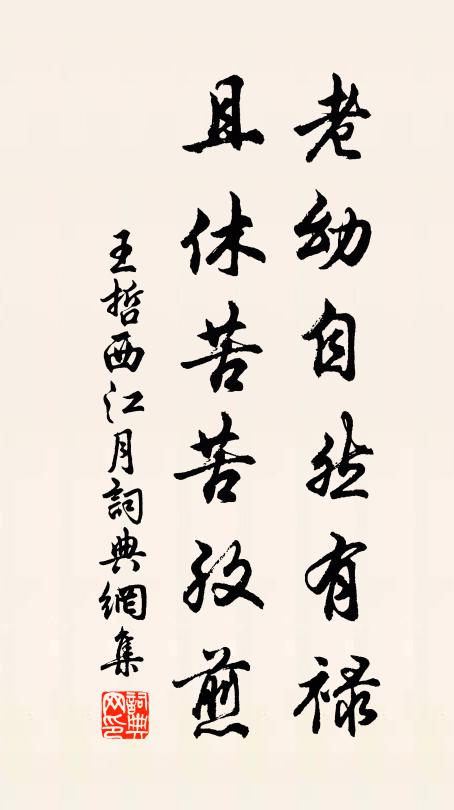 老幼自然有禄
且休苦苦孜煎
王哲西江月詞典網集
詞典
网印